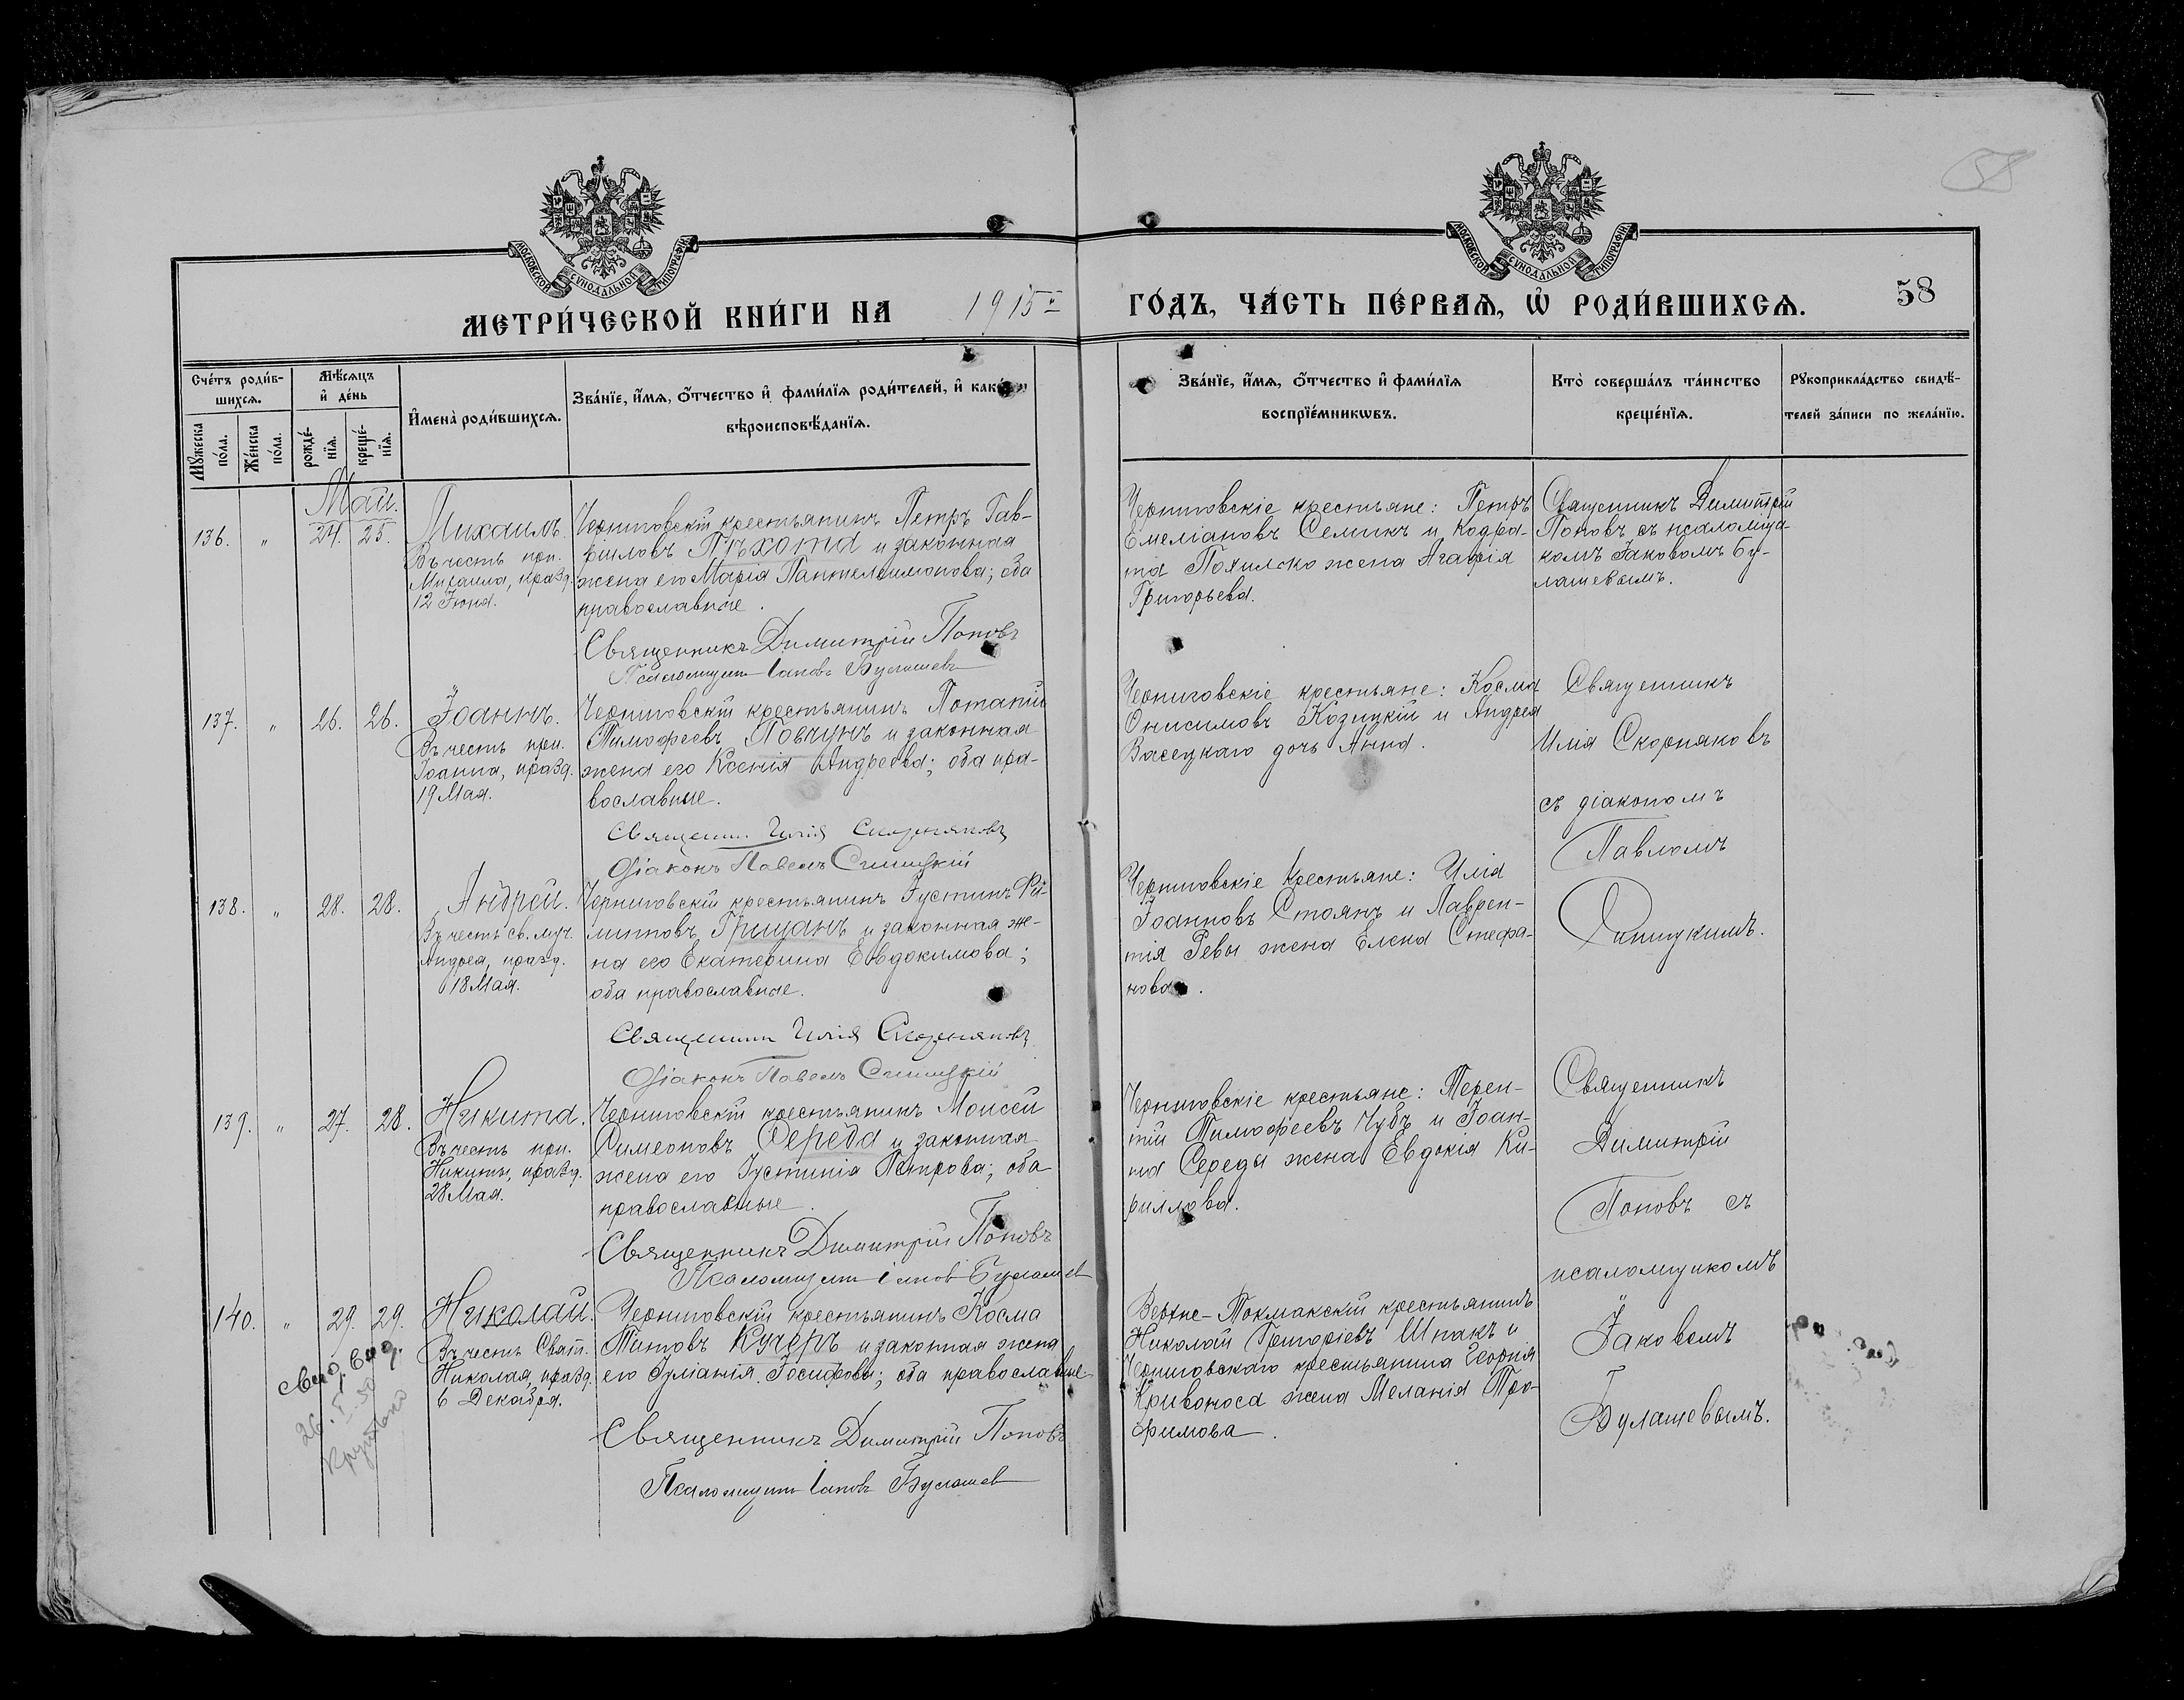 58
МОСКОВСКОЙ СУНОДАЛЬНОЙ ТИПОГРАФІИ
МОСКОВСКОЙ СУНОДАЛЬНОЙ ТИПОГРАФІИ
МЕТРИ́ЧЕСКОЙ КНИ́ГИ НА 1915 ГО́ДЪ, ЧА́СТЬ ПЕ́РВАЯ, Ѡ҆ РОДИ́ВШИХСЯ. 58
Сче́тъ роди́в-
шихся.
Мѣ́сяцъ
и҆ де́нь
И҆мена̀ роди́вшихся.
Зва́нїе, и҆́мя, о҆́тчество и҆ фами́лїя роди́телей, и҆ како́гѡ
вѣроисповѣ́данїя.
Мꙋ́жеска
по́ла.
Же́нска
по́ла.
рожде́-
нїя.
креще́-
нїя.
Зва́нїе, и҆́мя, о҆́тчество и҆ фами́лїя
воспрїе́мникѡвъ.
Кто̀ соверша́лъ та́инство
креще́нїя.
Рꙋкоприкла́дство свидѣ́-
телей за́писи по жела́нїю.
Май.
136. " 24. 25.
Михаилъ.
Въ честь пр.
Михаила, празд.
12 Іюня.
Черниговскій крестьянинъ Петръ Гав-
риловъ Пѣхота и законная
жена его Марія Пантелеимонова; оба
православные.
Священникъ Димитрій Поповъ
Псаломщикъ Іаковъ Булашевъ
Черниговскіе крестьяне: Петръ
Емеліановъ Семикъ и Кодра-
та Похилько жена Агафія
Григорьева.
Священникъ Димитрій
Поповъ съ псаломщи-
комъ Іаковомъ Бу-
лашевымъ.
137. " 26. 26.
Іоаннъ.
Въ честь пр.
Іоанна, празд.
19 Мая.
Черниговскій крестьянинъ Потапій
Тимофеевъ Ковчунъ и законная
жена его Ксенія Андреева; оба пра-
вославные.
Священникъ Илія Скорняковъ
Діаконъ Павелъ Синицкій
Черниговскіе крестьяне: Косма
Онисимовъ Козицкій и Андрея
Васецкаго дочь Анна.
Священникъ
Илія Скорняковъ
съ діакономъ
Павломъ
Синицкимъ.
138. " 28. 28.
Андрей.
Въ честь св. муч.
Андрея, празд.
18 Мая.
Черниговскій крестьянинъ Іустинъ Фи-
липповъ Грицанъ и законная же-
на его Екатерина Евдокимова;
оба православные.
Священникъ Илія Скорняковъ
Діаконъ Павелъ Синицкій
Черниговскіе крестьяне: Илія
Іоанновъ Стоянъ и Лаврен-
тія Ревы жена Елена Стефа-
нова.
139. " 27. 28.
Никита.
Въ честь пр.
Никиты, празд.
28 Мая.
Черниговскій крестьянинъ Моисей
Симеоновъ Середа и законная
жена его Іустинія Петрова; оба
православные.
Священникъ Димитрій Поповъ
Псаломщикъ Іаковъ Булашевъ
Черниговскіе крестьяне: Терен-
тій Тимофеевъ Чубъ и Іоан-
на Середы жена Евдокія Ки-
риллова.
Священникъ
Димитрій
Поповъ съ
псаломщикомъ
Іаковомъ
Булашевымъ.
140. " 29. 29.
Николай.
Въ честь Свят.
Николая, празд.
6 Декабря.
Черниговскій крестьянинъ Косма
Титовъ Кучеръ и законная жена
его Іуліанія Іосифова; оба православные
Священникъ Димитрій Поповъ
Псаломщикъ Іаковъ Булашевъ
Верхне-Токмакскій крестьянинъ
Николай Григоріевъ Шпакъ и
Черниговскаго крестьянина Георгія
Кривоноса жена Меланія Тро-
фимова.
26.